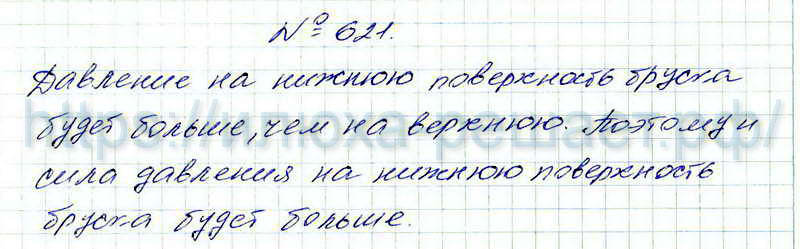 № 621.
Давление на нижнюю поверхность бруска
будет больше, чем на верхнюю. Поэтому и
сила давления на нижнюю поверхность
бруска будет больше.